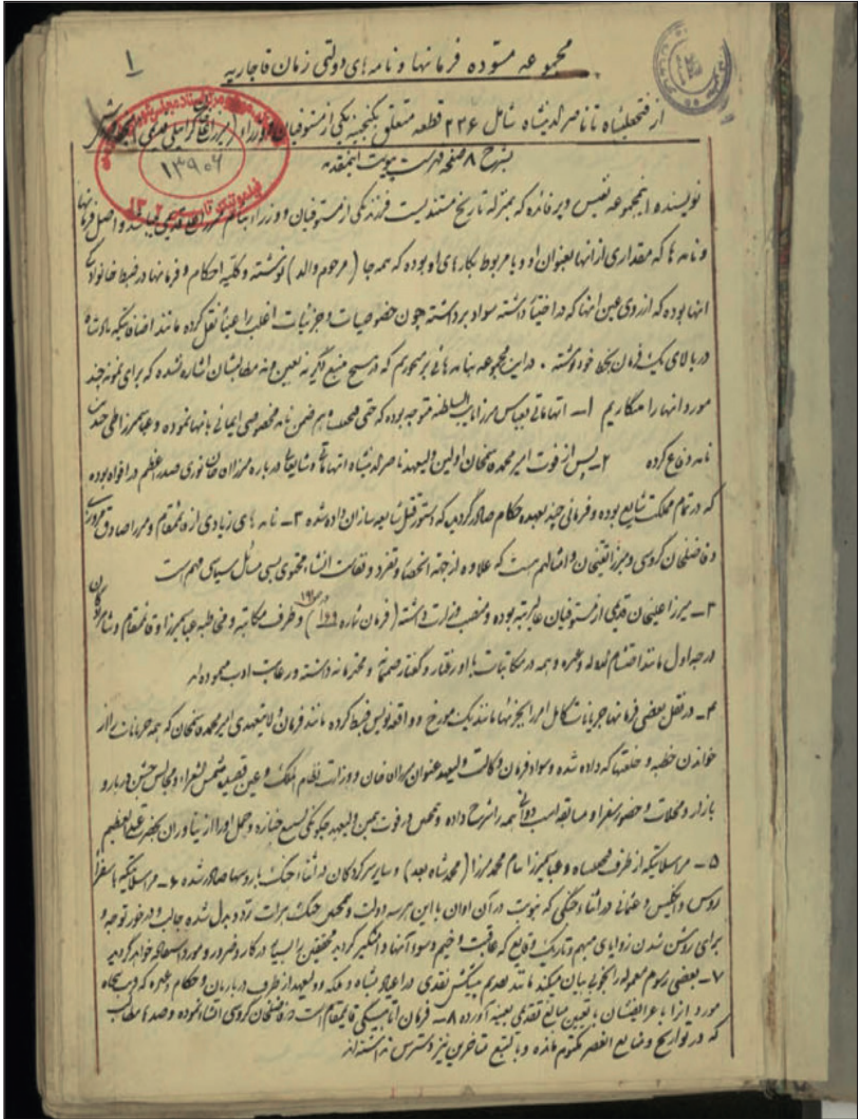 ۱
مجموعه مسوده فرمانها و نامه های دولتی زمان قاجاریه
از فتحعلیشاه تا ناصرالدینشاه شامل ۲۳۶ قطعه متعلق بگنجینه یکی از مستوفیان و وزراء
۱۳۹۰۶
بشرح ۸ صفحه فهرست پیوست اینمقدمه
نویسنده اینمجموعه نفیس و پر فائده که بمنزله تاریخ مستندیست فرزند یکی از مستوفیان و وزراء بنام میرزا و اصل فرمانها
و نامه ها که مقداری از آنها بعنوان او و یا مربوط بکارهای او بوده که همه جا (مرحوم والد) نوشته و کلیه احکام و فرمانها در ضبط خانوادگی
آنها بوده که از روی عین آنها که در اختیار داشته سواد برداشته چون خصوصیات و جزئیات اغلب را عیناً نقل کرده مانند اضافاتیکه پادشاه
در بالای یک فرمان بخط خود نوشته ۰ در این مجموعه بنامه هائی برمیخوریم که در هیچ منبع دیگر نه بعین و نه مطالبشان اشاره نشده که برای نمونه چند
مورد آنها را مینگاریم ۱ـ اتهاماتی بعباس میرزا نایب السلطنه متوجه بوده که حتی هم ضمن نامه مخصوصی ایمائی بآنها نموده و عباسمیرزا طی چندین
نامه دفاع کرده ۲ـ پس از فوت امیر محمد قاسمخان اولین ولیعهد ناصرالدینشاه اتهاماتی و شایعاتی درباره میرزا آقا خان نوری صدر اعظم در افواه بوده
که در تمام مملکت شایع بوده و فرمانی چند بعهده حکام صادر گردیده که دستور قتل شایعه سازان داده شده ۳ـ نامه های زیادی از قائممقام و میرزا صادق مروزی
و فاضلخان گروسی و میرزا تقیخان و امثالهم هست که علاوه از جهة انحصار و تفرد و نفاست انشاء محتوی بسی مسائل سیاسی مهم است
۳ـ میرزا علیخان از مستوفیان عالیرتبه بوده و منصب وزارت داشته (فرمان شماره ۱۶۹) و طرف مکاتبه و مخاطبه عباسمیرزا و قائممقام و شاهزادگان
درجه اول مانند احتشام الدوله و غیره و همه در مکاتبات با او رفتار و گفتار صمیمانه و محترمانه داشته و رعایت ادب مینموده اند
۴ـ در نقل بعضی فرمانها جریانات کامل امر را بجزئها مانند یک مورخ و واقعه نویس ضبط کرده مانند فرمان ولایتعهدی امیر محمد قاسمخان که همه جریانات را از
خواندن خطبه و خلعتها که داده شده و سواد فرمان وکالت ولیعهد بعنوان میرزا خان و وزارت نظام الملک و عین قصیده شمس الشعراء و مجالس جشن دربار و
بازار و محلات و حضور سفرا و مسابقه اسب دوانی همه را شرح داده و همچنین در فوت همین ولیعهد چگونگی تشییع جنازه و حمل او را از نیاوران بحضرت عبدالعظیم
۵ـ مراسلاتیکه از طرف فتحعلیشاه و عباسمیرزا بنام محمد میرزا (محمد شاه بعد) و سایر سرکردگان در اثناء جنگ با روسها صادر شده ۶ـ مراسلاتیکه با سفراء
روس و انگلیس و عثمانی در اثناء جنگی که بنوبت در آن اوان با این هر سه دولت و همچنین جنگ هرات تردد و بدل شده جالب و در خور توجه و
برای روشن شدن زوایای مبهم و تاریک وقایع که عاقبت وخیم و سوء آنها دامنگیر گردید محققین را بسیار در کار و ضرور و مورد استفاده خواهد گردید
۷ـ بعضی رسوم معموله را بخوبی بیان میکند مانند تقدیم پیشکش نقدی در اعیاد بشاه و ملکه و ولیعهد از طرف درباریان و حکام و غیره که
مورد آنرا با عرایضشان با تعیین مبالغ تقدیمی بعینه آورده ۸ـ فرمان اتابیگی قائممقام است که فاضلخان گروسی انشاء نموده و صدها مطالب
که در تواریخ وقایع العصر مکتوم مانده و با تتبع متأخرین نیز دسترس نداشته اند